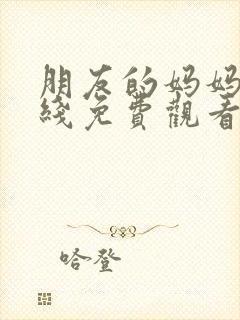 朋友的妈妈
綫免費觀看
哈登